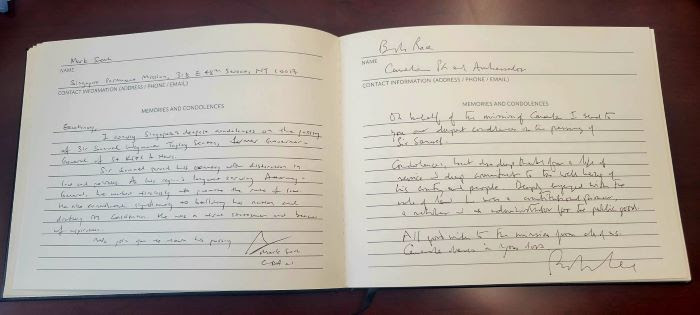 Mark Seah
NAME
Singapore Permanent Mission, 318 E 48th Street, NY 10017
CONTACT INFORMATION (ADDRESS / PHONE / EMAIL)
MEMORIES AND CONDOLENCES
Excellency,
I convey Singapore's deepest condolences on the passing
of Sir Samuel Weymouth Tapley Seaton, former Governor-
General of St Kitts & Nevis.
Sir Samuel served his country with distinction in
law and politics. As his region's longest serving Attorney-
General, he worked tirelessly to promote the rule of law.
He also contributed significantly to building his nation and
He was a true statesman and beacon
of
We join you to mourn his passing
Mark Seah
CDA a.i
Bob Rae
NAME
Canadian PR and Ambassador
CONTACT INFORMATION (ADDRESS / PHONE / EMAIL)
MEMORIES AND CONDOLENCES
On behalf of the mission of Canada I send to
you our deepest condolences on the passing of
Sir Samuel.
Condolences, but also deep thanks for a life of
service and deep commitment to the well being of
his country and people. Deeply engaged with the
rule of law he was a constitutional
a and for the public good.
All good wishes to the mission from all of us.
Canada shares in your loss.